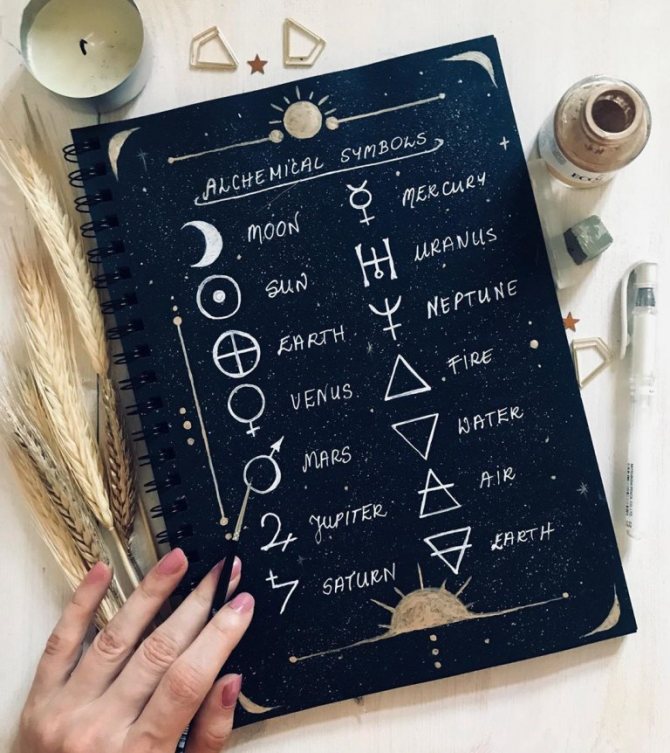 ALCHEMICAL SYMBOLS
MOON
SUN
EARTH
VENUS
MARS
JUPITER
SATURN
MERCURY
URANUS
NEPTUNE
FIRE
WATER
AIR
EARTH